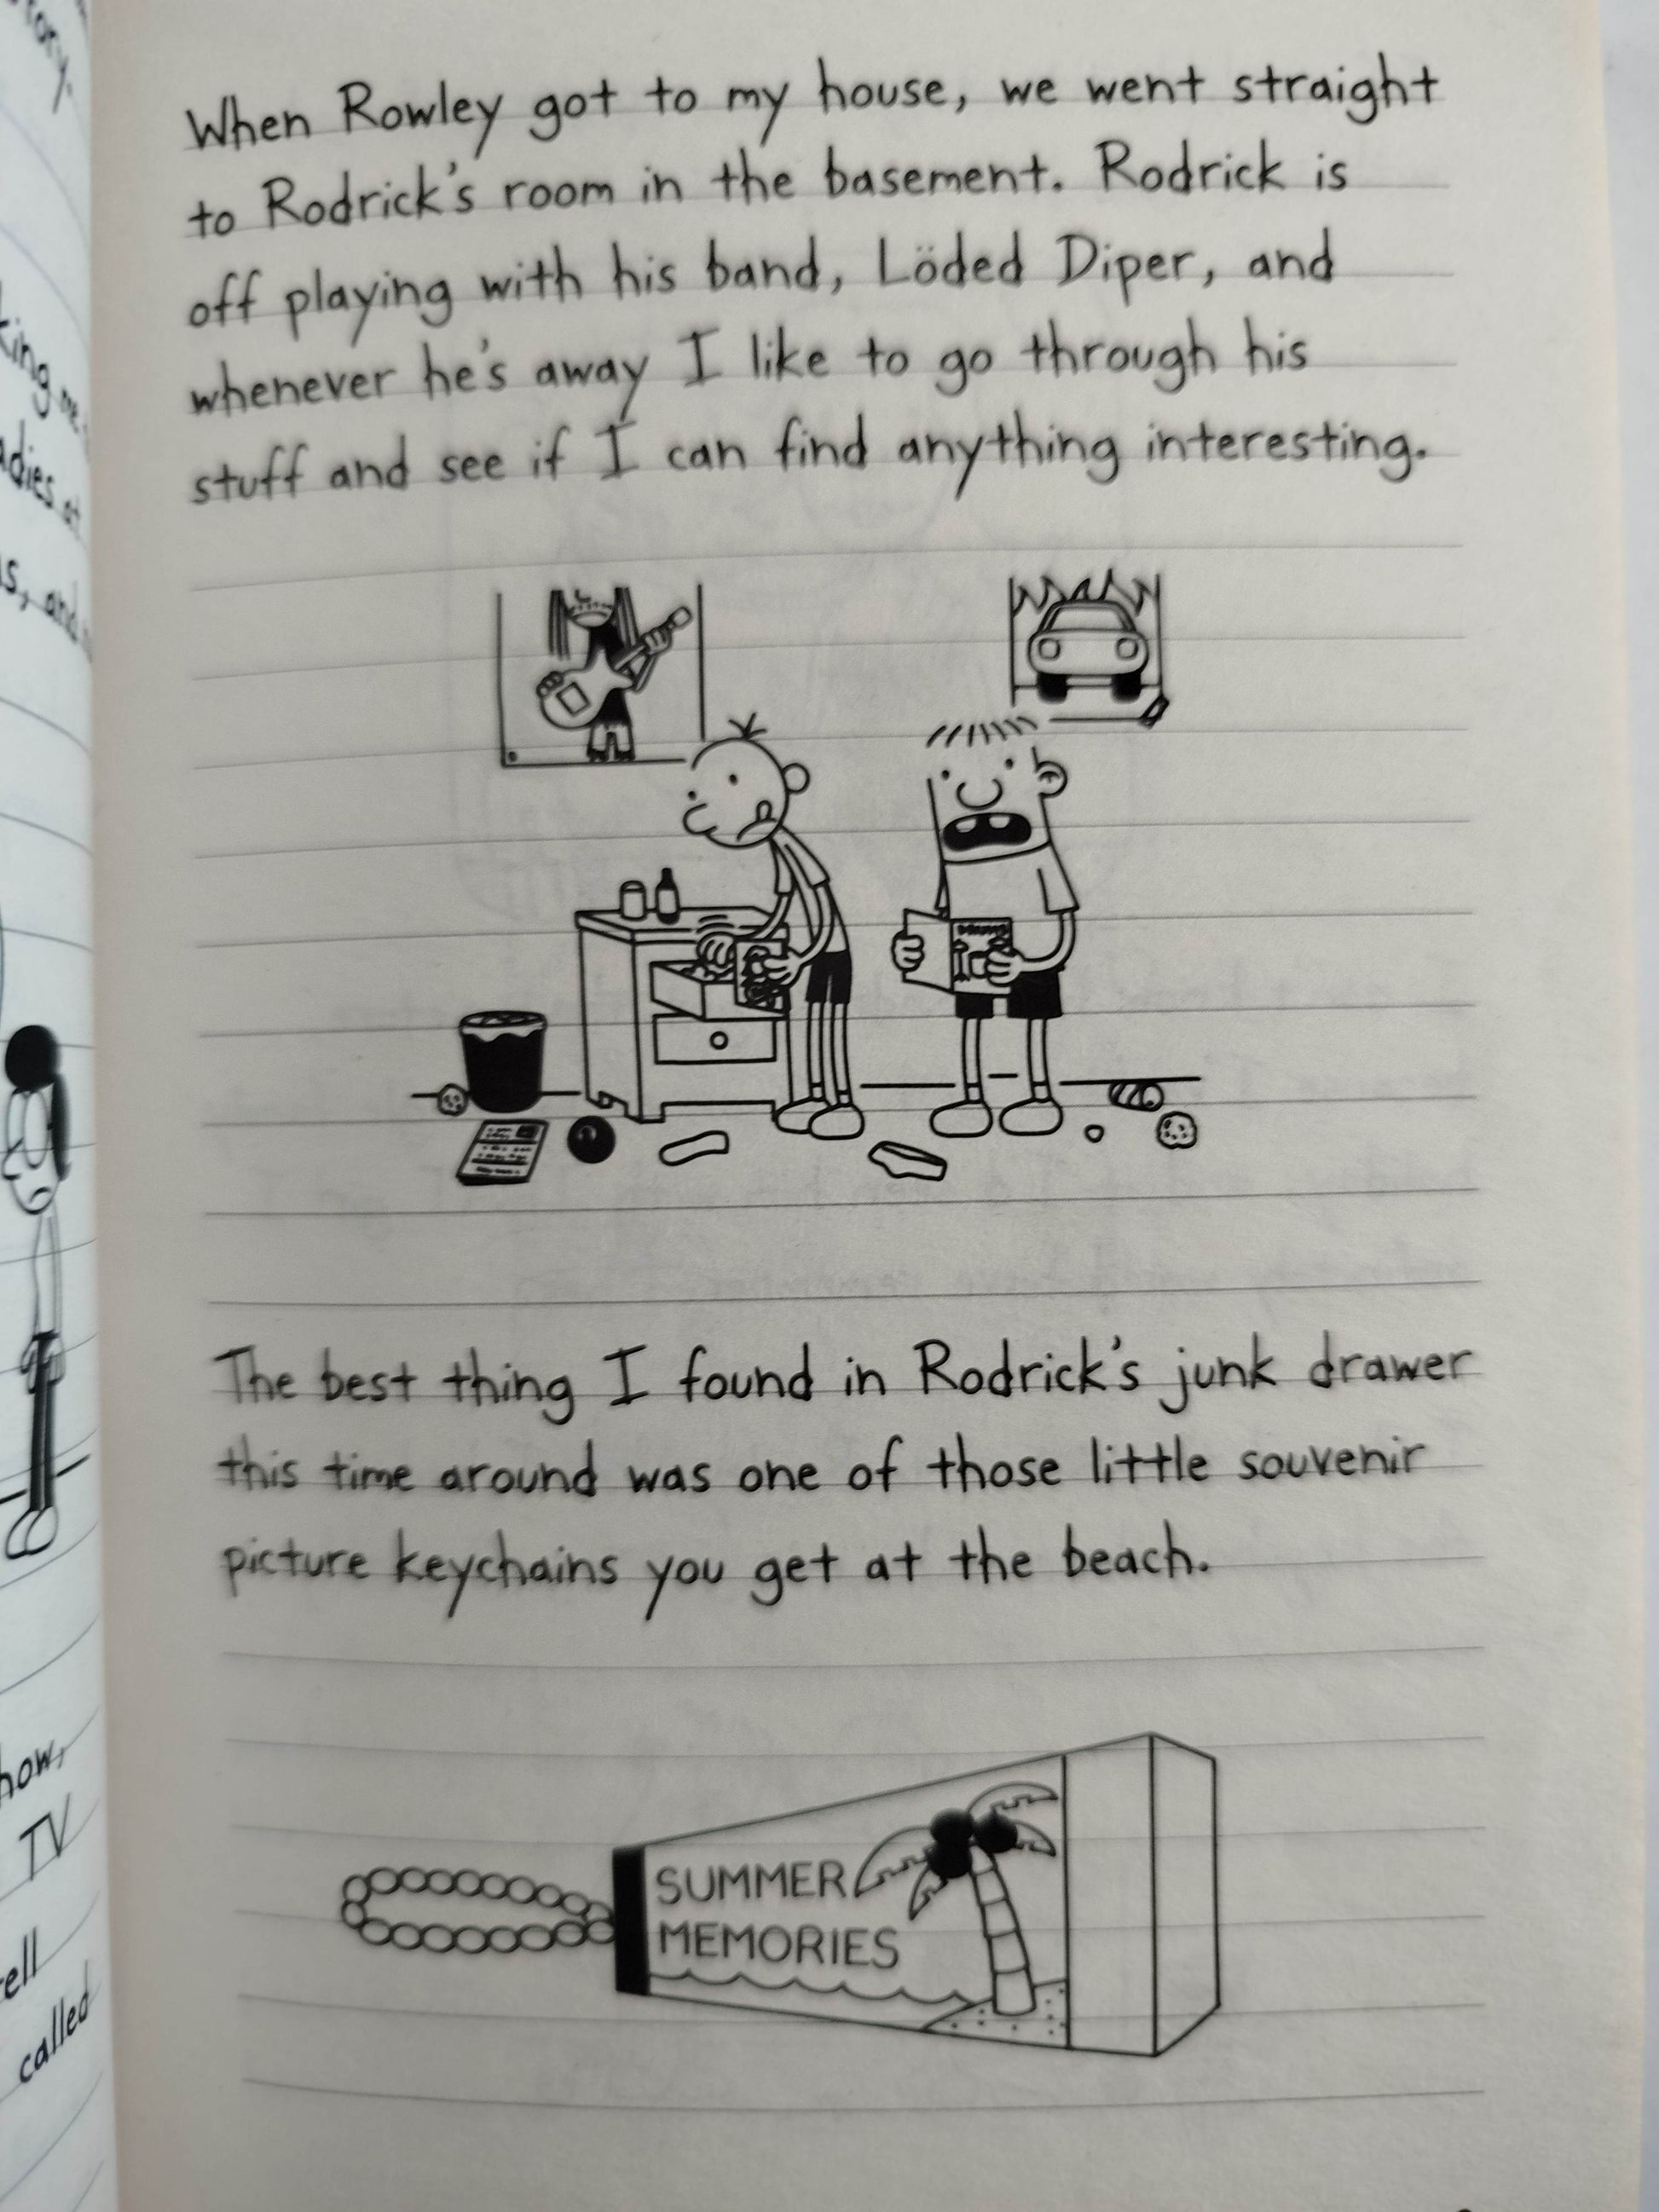 When Rowley got to my house, we went straight
to Rodrick's room in the basement. Rodrick is
off playing with his band, Löded Diper, and
whenever he's away I like to go through his
stuff and see if I can find anything interesting.
The best thing I found in Rodrick's junk drawer
this time around was one of those little souvenir
picture keychains you get at the beach.
SUMMER
MEMORIES
TV
called